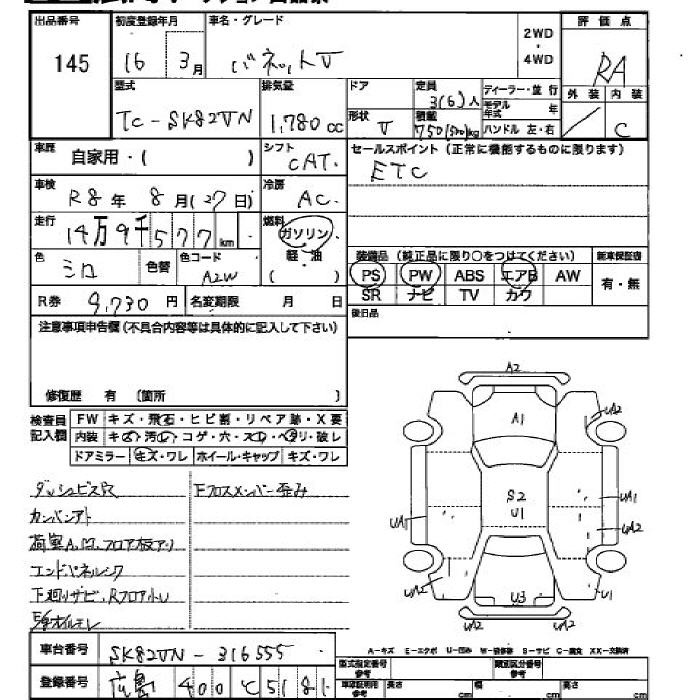 出品番号 初度登録年月 車名・グレード 2WD ・ 4WD 評価点
145 16 3月 バネットV RA
型式 排気量 ドア 定員 3(6)人 ディーラー・並行 外装 内装
TC-SK82VN 1,780cc 形状 V 積載 750(500)kg モデル年式 年 ハンドル 左・右 C
車歴 自家用・( ) シフト CAT. セールスポイント(正常に機能するものに限ります)
ETC
車検 R8年 8月(27日) 冷房 AC.
走行 14万9千577km 燃料 ガソリン 軽・油 ( )
色 シロ 色替 色コード A2W 装備品(純正品に限り○をつけてください) 新車保証書
PS PW ABS エアB AW 有・無
SR ナビ TV カワ
R券 9,730円 名変期限 月 日 後日品
注意事項申告欄(不具合内容等は具体的に記入して下さい)
修復歴 有 〔箇所 〕
検査員記入欄 FW キズ・飛石・ヒビ割・リペア跡・X要
内装 キズ・汚れ・コゲ・穴・スレ・ヘタリ・破レ
ドアミラー キズ・ワレ ホイール・キャップ キズ・ワレ
ダッシュビス穴 Fクロスメンバー歪み
カンバンアト
荷室A.U.フロア板アリ
エンドパネルシワ
下廻りサビ、Rフロア小U
A2
A1
S2
U1
U3
UA2
UA1
UA2
UA1
UA2
U1
UA2
UA2
A-キズ E-エクボ U-凹み W-補修跡 S-サビ C-腐食 XX-交換済
車台番号 SK82VN-316555 型式指定番号 参考 類別区分番号 参考
登録番号 広島 400 て 5181 車庫証明用 参考 長さ cm 幅 cm 高さ cm